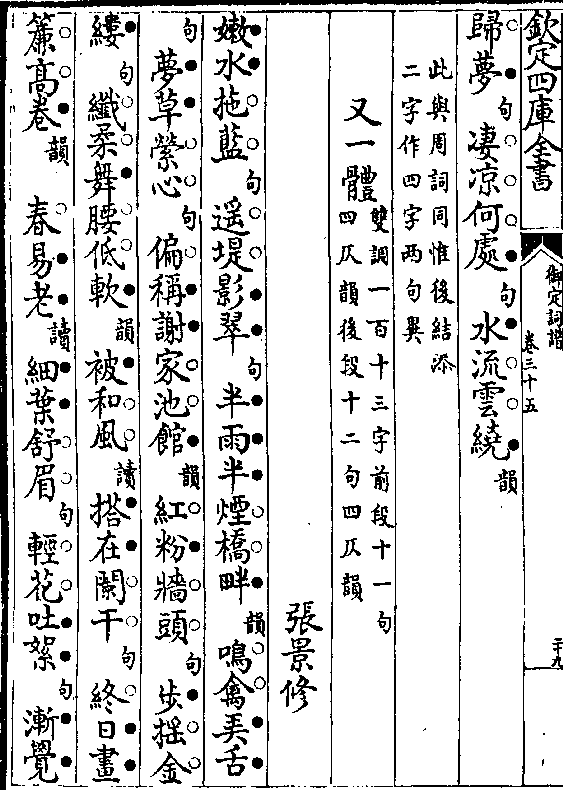 欽定四庫全書
御定詞譜
卷三十五
二十九
歸夢句淒凉何處句水流雲繞韻
此與周詞同惟後結添
二字作四字两句異
又一體雙調一百十三字前段十一句
四仄韻後段十二句四仄韻
張景修
嫩水拖藍句遥堤影翠句半雨半煙橋畔韻鳴禽弄舌
句夢草縈心句偏稱謝家池館韻紅粉牆頭句步摇金
縷句纖柔舞腰低軟韻被和風讀搭在闌干句終日畫
簾高卷韻春易老讀細葉舒眉句輕花吐絮句漸覺